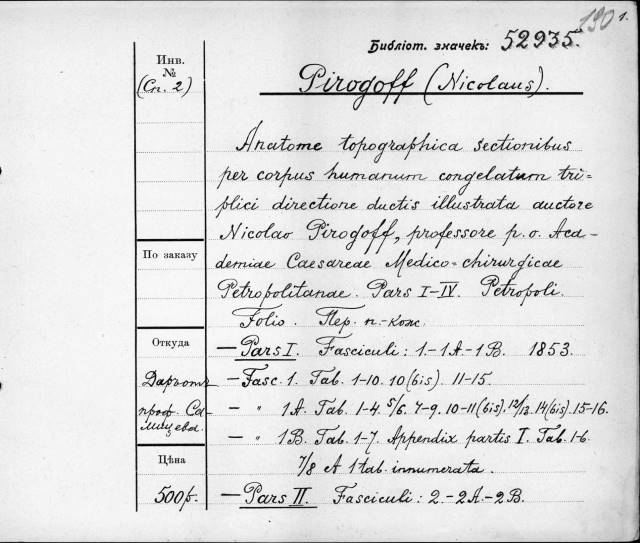 190 1.
Библіот. значекъ: 52935.
Инв.
№
(Сп. 2)
Pirogoff (Nicolaus).
Anatome topographica sectionibus
per corpus humanum congelatum tri=
plici directione ductis illustrata auctore
Nicolao Pirogoff, professore p. o. Aca-
demiae Caesareae Medico-chirurgicae
Petropolitanae. Pars I-IV. Petropoli.
Folio. Пер. п.-кож.
По заказу
Откуда
Даръ отъ
проф. Са-
Цѣна
500 р.
— Pars I. Fasciculi: 1.-1A-1B. 1853.
— Fasc. 1. Tab. 1-10. 10(bis). 11-15.
— " 1A. Tab. 1-4. 5/6. 7-9. 10-11(bis). 12/13. 14(bis). 15-16.
— " 1B. Tab. 1-7. Appendix partis I. Tab. 1-6.
7/8 et 1 tab. innumerata.
— Pars II. Fasciculi: 2.-2A.-2B.